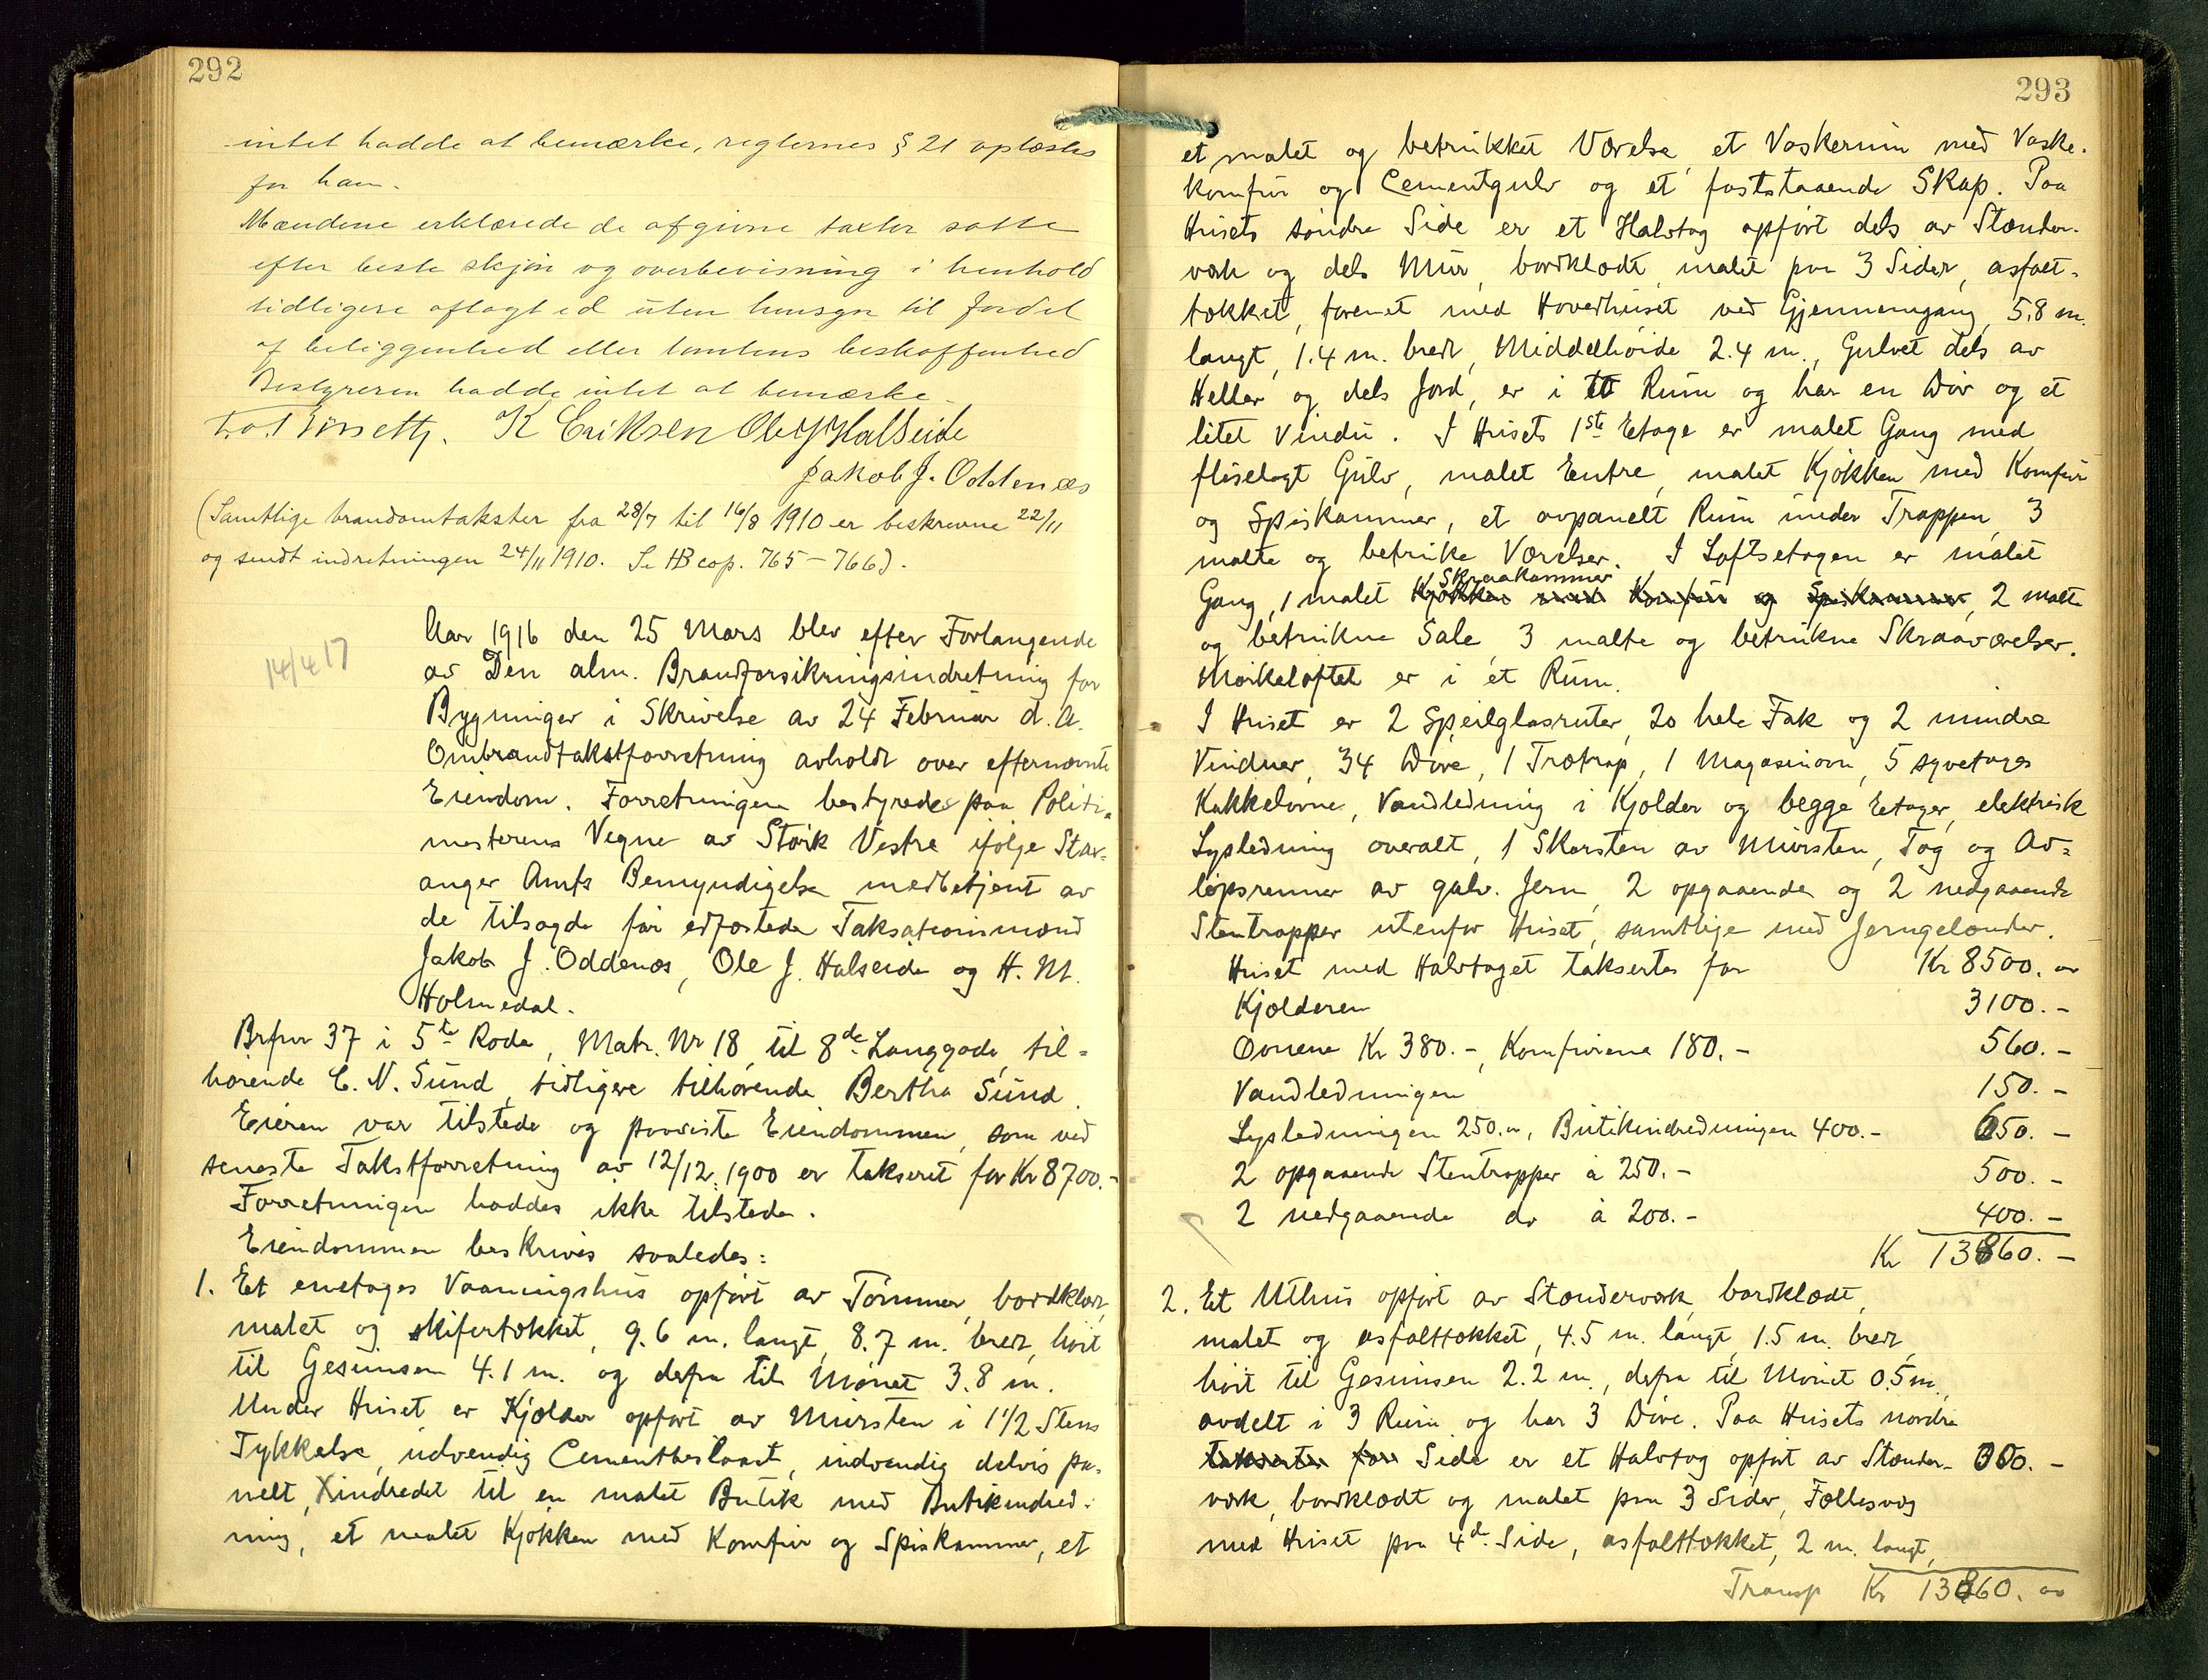 292
intet hadde at bemærke, reglernes § 21 oplæstes
for ham.
Mændene erklærede de afgivne taxter satte
efter beste skjøn og overbevisning i henhold
tidligere aflagt ed uten hensyn til fordel
af beliggenhed eller tomtens beskaffenhed
Bestyreren hadde intet at bemærke.
K Eriksen Ole J Halseide
Jakob J. Oddenæs
(Samtlige brandomtakster fra 28/7 til 16/8 1910 er beskrevne 22/11
og sendt indretningen 24/11 1910. Se HB cop. 765 - 766).
14/4 17
Aar 1916 den 25 Mars blev efter Forlangende
av Den alm. Brandforsikringsindretning for
Bygninger i Skrivelse av 24 Februar d. A.
Ombrandtakstforretning avholdt over efternævnte
Eiendom. Forretningen bestyredes paa Politi-
mesterens Vegne av Störk Vestre ifølge Stav-
anger Amts Bemyndigelse medbetjent av
de tilsagde før edfæstede Taksationsmænd
Jakob J. Oddenæs, Ole J. Halseide og H. M.
Holmedal.
Brfnr 37 i 5te Rode, Matr. Nr 18 til 8de Langgade, til-
hørende C. N. Sund, tidligere tilhørende Bertha Sund.
Eieren var tilstede og paaviste Eiendommen, som ved
seneste Takstforretning av 12/12. 1900 er takseret for Kr 8700.-
Forretningen haddes ikke tilstede.
Eiendommen beskrives saaledes:
1. Et enetages Vaaningshus opført av Tømmer, bordklædt,
malet og skifertækket, 9.6 m. langt, 8.7 m. bredt, høit
til Gesimsen 4.1 m. og derfra til Mønet 3.8 m.
Under Huset er Kjælder opført av Mursten i 1 1/2 Stens
Tykkelse, udvendig Cementbeslaaet, indvendig delvis pa-
nelt, indredet til en malet Butik med Butikindred-
ning, et malet Kjøkken med Komfur og Spiskammer, et
293
et malet og betrukket Værelse, et Vaskerum med Vaske-
komfur og Cementgulv og et faststaaende Skap. Paa
Husets søndre Side er et Halvtag opført dels av Stænder-
værk og dels Mur, bordklædt, malet paa 3 Sider, asfalt-
tækket, forenet med Hovedhuset ved Gjennemgang, 5.8 m.
langt, 1.4 m. bredt, Middelhøide 2.4 m., Gulvet dels av
Heller og dels Jord, er i et Rum og har en Dør og et
litet Vindu. I Husets 1ste Etage er malet Gang med
fliselagt Gulv, malet Entre, malet Kjøkken med Komfur
og Spiskammer, et avpanelt Rum under Trappen, 3
malte og betrukne Værelser. I Loftsetagen er malet
Skraakammer
Gang, 1 malet Kjøkken med Komfur og Spiskammer, 2 malte
og betrukne Sale, 3 malte og betrukne Skraaværelser.
Mørkeloftet er i et Rum.
I Huset er 2 Speilglasruter, 20 hele Fak og 2 mindre
Vinduer, 34 Døre, 1 Trætrap, 1 Magasinovn, 5 syvetages
Kakkelovne, Vandledning i Kjelder og begge Etager, elektrisk
Lysledning overalt, 1 Skorsten av Mursten, Tag og Av-
løpsrenner av galv. Jern, 2 opgaaende og 2 nedgaaende
Stentrapper utenfor Huset, samtlige med Jerngelænder.
Huset med Halvtaget takseres for Kr 8500. "
Kjælderen 3100.-
Ovnene Kr 380.-, Komfurene 180.- 560.-
Vandledningen 150.-
Lysledningen 250. ", Butikindredningen 400.- 650.-
2 opgaaende Stentrapper à 250.- 500.-
2 nedgaaende do à 200.- 400.-
Kr 13860.-
2. Et Uthus opført av Stænderværk, bordklædt,
malet og asfalttækket, 4.5 m. langt, 1.5 m. bredt,
høit til Gesimsen 2.2 m., derfra til Mønet 0.5 m.,
avdelt i 3 Rum og har 3 Døre. Paa Husets nordre
takseres for Side er et Halvtag opført av Stænder-
værk, bordklædt og malet paa 3 Sider, Fællesvæg
med Huset paa 4de Side, asfalttækket, 2 m. langt,
Transp Kr 13860. "